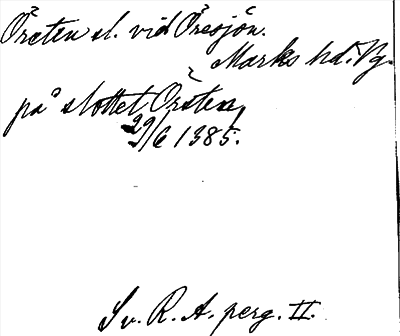 Öresten sl. vid Öresjön.
Marks hd. Vg.
på slottet Örsten,
29/6 1385.
Sv. R. A. perg. II.